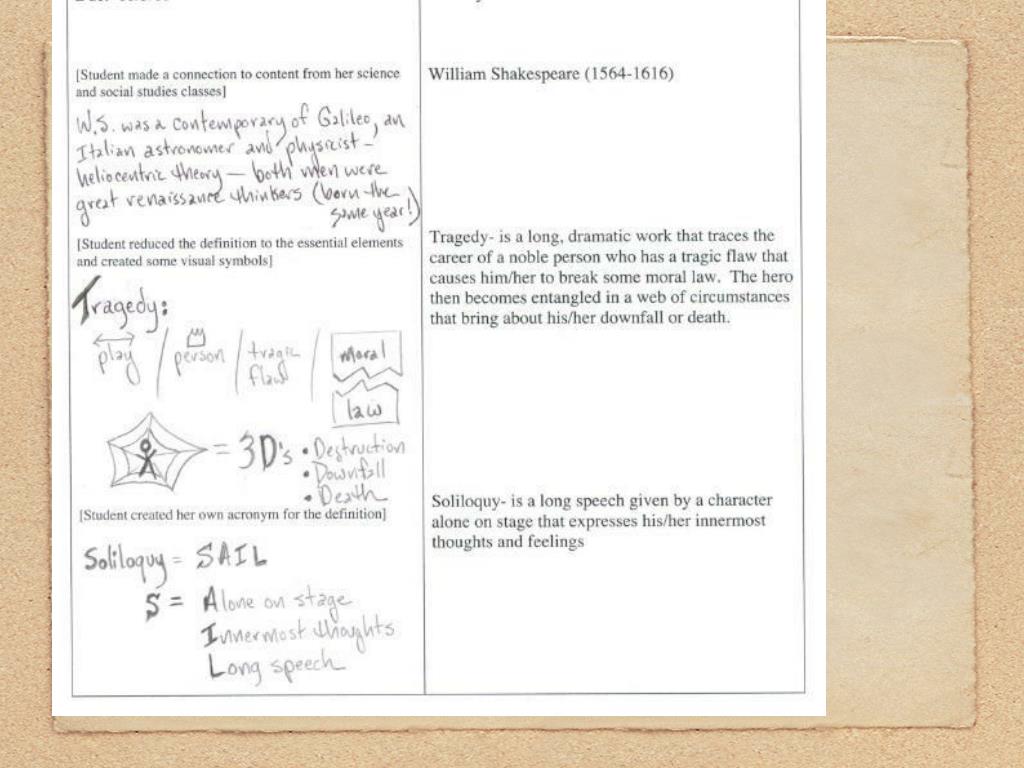 [Student made a connection to content from her science
and social studies classes]
W.S. was a contemporary of Galileo, an
Italian astronomer and physicist -
heliocentric theory — both men were
great renaissance thinkers (born the
same year!)
[Student reduced the definition to the essential elements
and created some visual symbols]
Tragedy:
play / person / tragic flaw / moral law
= 3D's • Destruction
• Downfall
• Death
[Student created her own acronym for the definition]
Soliloquy = SAIL
S = Alone on stage
Innermost thoughts
Long speech
William Shakespeare (1564-1616)
Tragedy- is a long, dramatic work that traces the
career of a noble person who has a tragic flaw that
causes him/her to break some moral law. The hero
then becomes entangled in a web of circumstances
that bring about his/her downfall or death.
Soliloquy- is a long speech given by a character
alone on stage that expresses his/her innermost
thoughts and feelings